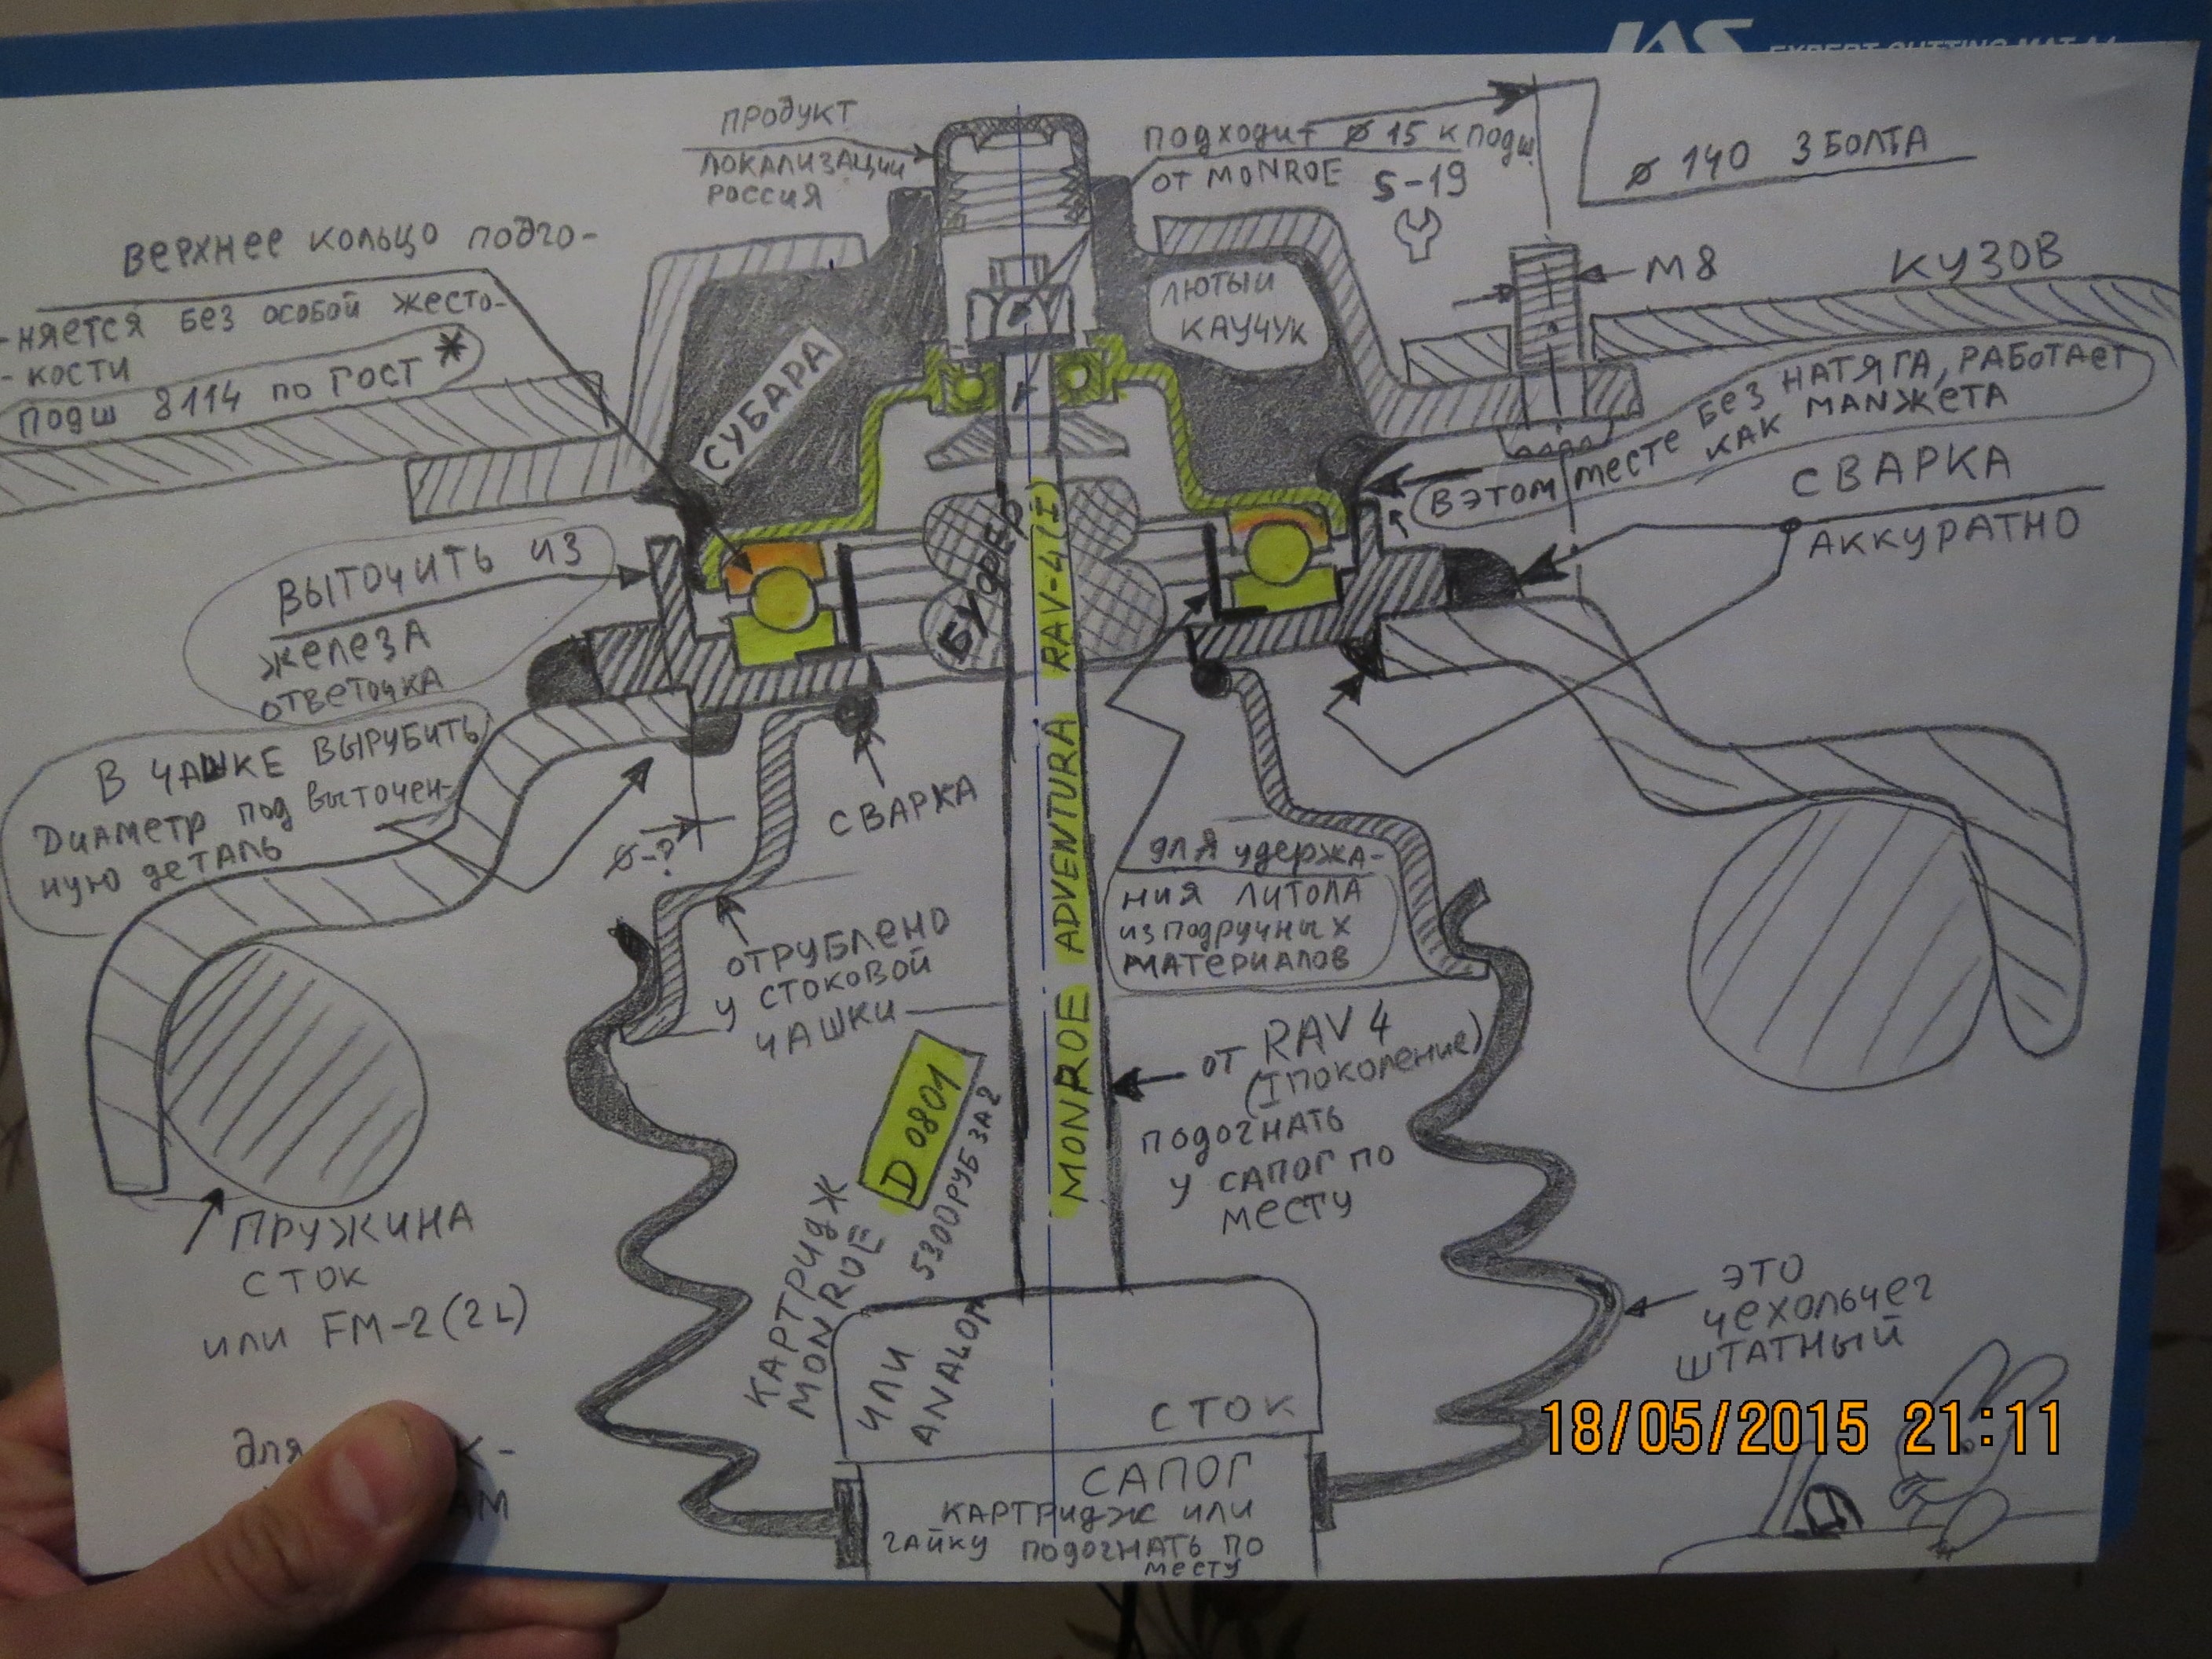 JAS
EXPERT CUTTING MAT A4
ПРОДУКТ
ЛОКАЛИЗАЦИИ
РОССИЯ
ПОДХОДИТ ⌀ 15 К ПОДШ.
ОТ MONROE
S-19
⌀ 140 3 БОЛТА
ВЕРХНЕЕ КОЛЬЦО ПОДГО-
-НЯЕТСЯ БЕЗ ОСОБОЙ ЖЕСТО-
-КОСТИ
ПОДШ 8114 ПО ГОСТ *
М8
КУЗОВ
ЛЮТЫЙ
КАУЧУК
СУБАРА
В ЭТОМ МЕСТЕ БЕЗ НАТЯГА, РАБОТАЕТ
КАК МАНЖЕТА
СВАРКА
АККУРАТНО
ВЫТОЧИТЬ ИЗ
ЖЕЛЕЗА
ОТВЕТОЧКА
БУФЕР
MONROE ADVENTURA RAV-4 (I)
В ЧАШКЕ ВЫРУБИТЬ
ДИАМЕТР ПОД ВЫТОЧЕН-
НУЮ ДЕТАЛЬ
⌀-?
СВАРКА
ДЛЯ УДЕРЖА-
НИЯ ЛИТОЛА
ИЗ ПОДРУЧНЫХ
МАТЕРИАЛОВ
ОТРУБЛЕНО
У СТОКОВОЙ
ЧАШКИ
ОТ RAV 4
(I ПОКОЛЕНИЕ)
ПОДОГНАТЬ
У САПОГ ПО
МЕСТУ
КАРТРИДЖ
MONROE
D 0801
5300 РУБ ЗА 2
ИЛИ
ANALOГ
ПРУЖИНА
СТОК
ИЛИ FM-2 (2L)
ЭТО
ЧЕХОЛЬЧЕГ
ШТАТНЫЙ
СТОК
САПОГ
КАРТРИДЖ ИЛИ
ГАЙКУ ПОДОГНАТЬ ПО
МЕСТУ
для
18/05/2015 21:11